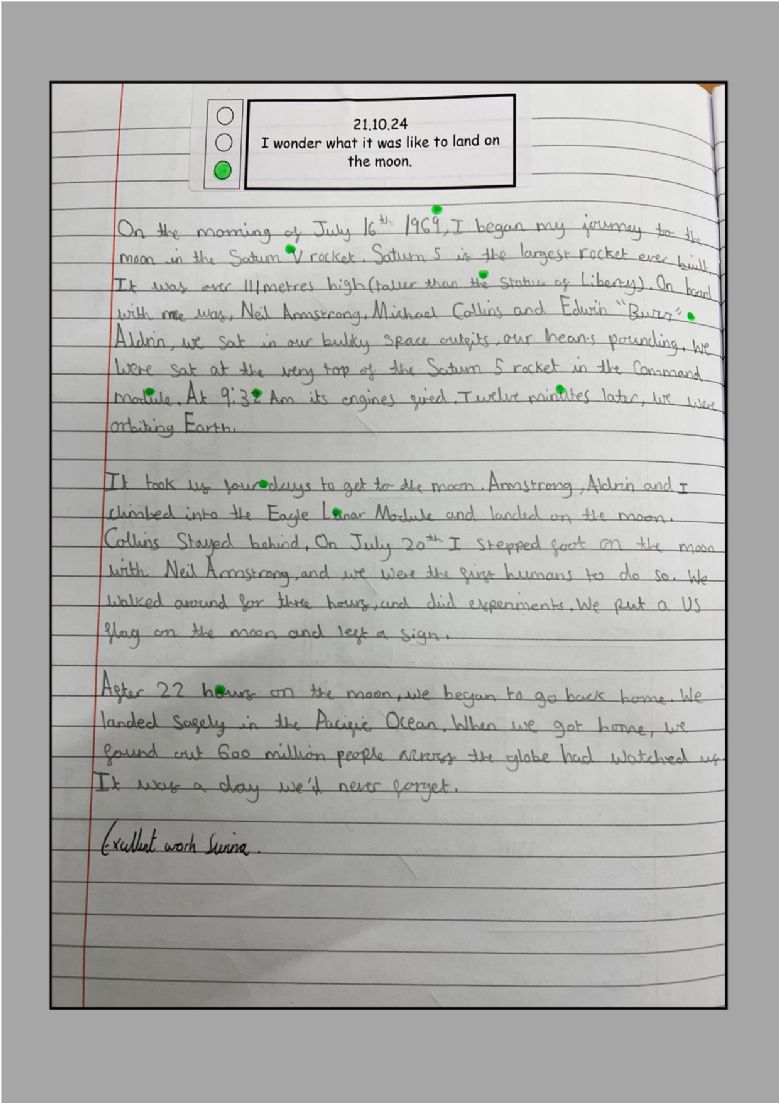 21.10.24
I wonder what it was like to land on
the moon.
On the morning of July 16th 1969, I began my journey to the
moon in the Saturn V rocket. Saturn 5 is the largest rocket ever built
It was over 111 metres high (taller than the Statue of Liberty). On board
with me was, Neil Armstrong, Michael Collins and Edwin "Buzz"
Aldrin, we sat in our bulky space outfits, our hearts pounding. We
were sat at the very top of the Saturn 5 rocket in the Command
module. At 9:32 Am its engines fired. Twelve minutes later, we were
orbiting Earth.
It took us four days to get to the moon. Armstrong, Aldrin and I
climbed into the Eagle Lunar Module and landed on the moon.
Collins Stayed behind. On July 20th I stepped foot on the moon
with Neil Armstrong, and we were the first humans to do so. We
walked around for three hours, and did experiments. We put a US
flag on the moon and left a sign.
After 22 hours on the moon, we began to go back home. We
landed safely in the Pacific Ocean. When we got home, we
found out 600 million people across the globe had watched us.
It was a day we'd never forget.
Excellent work